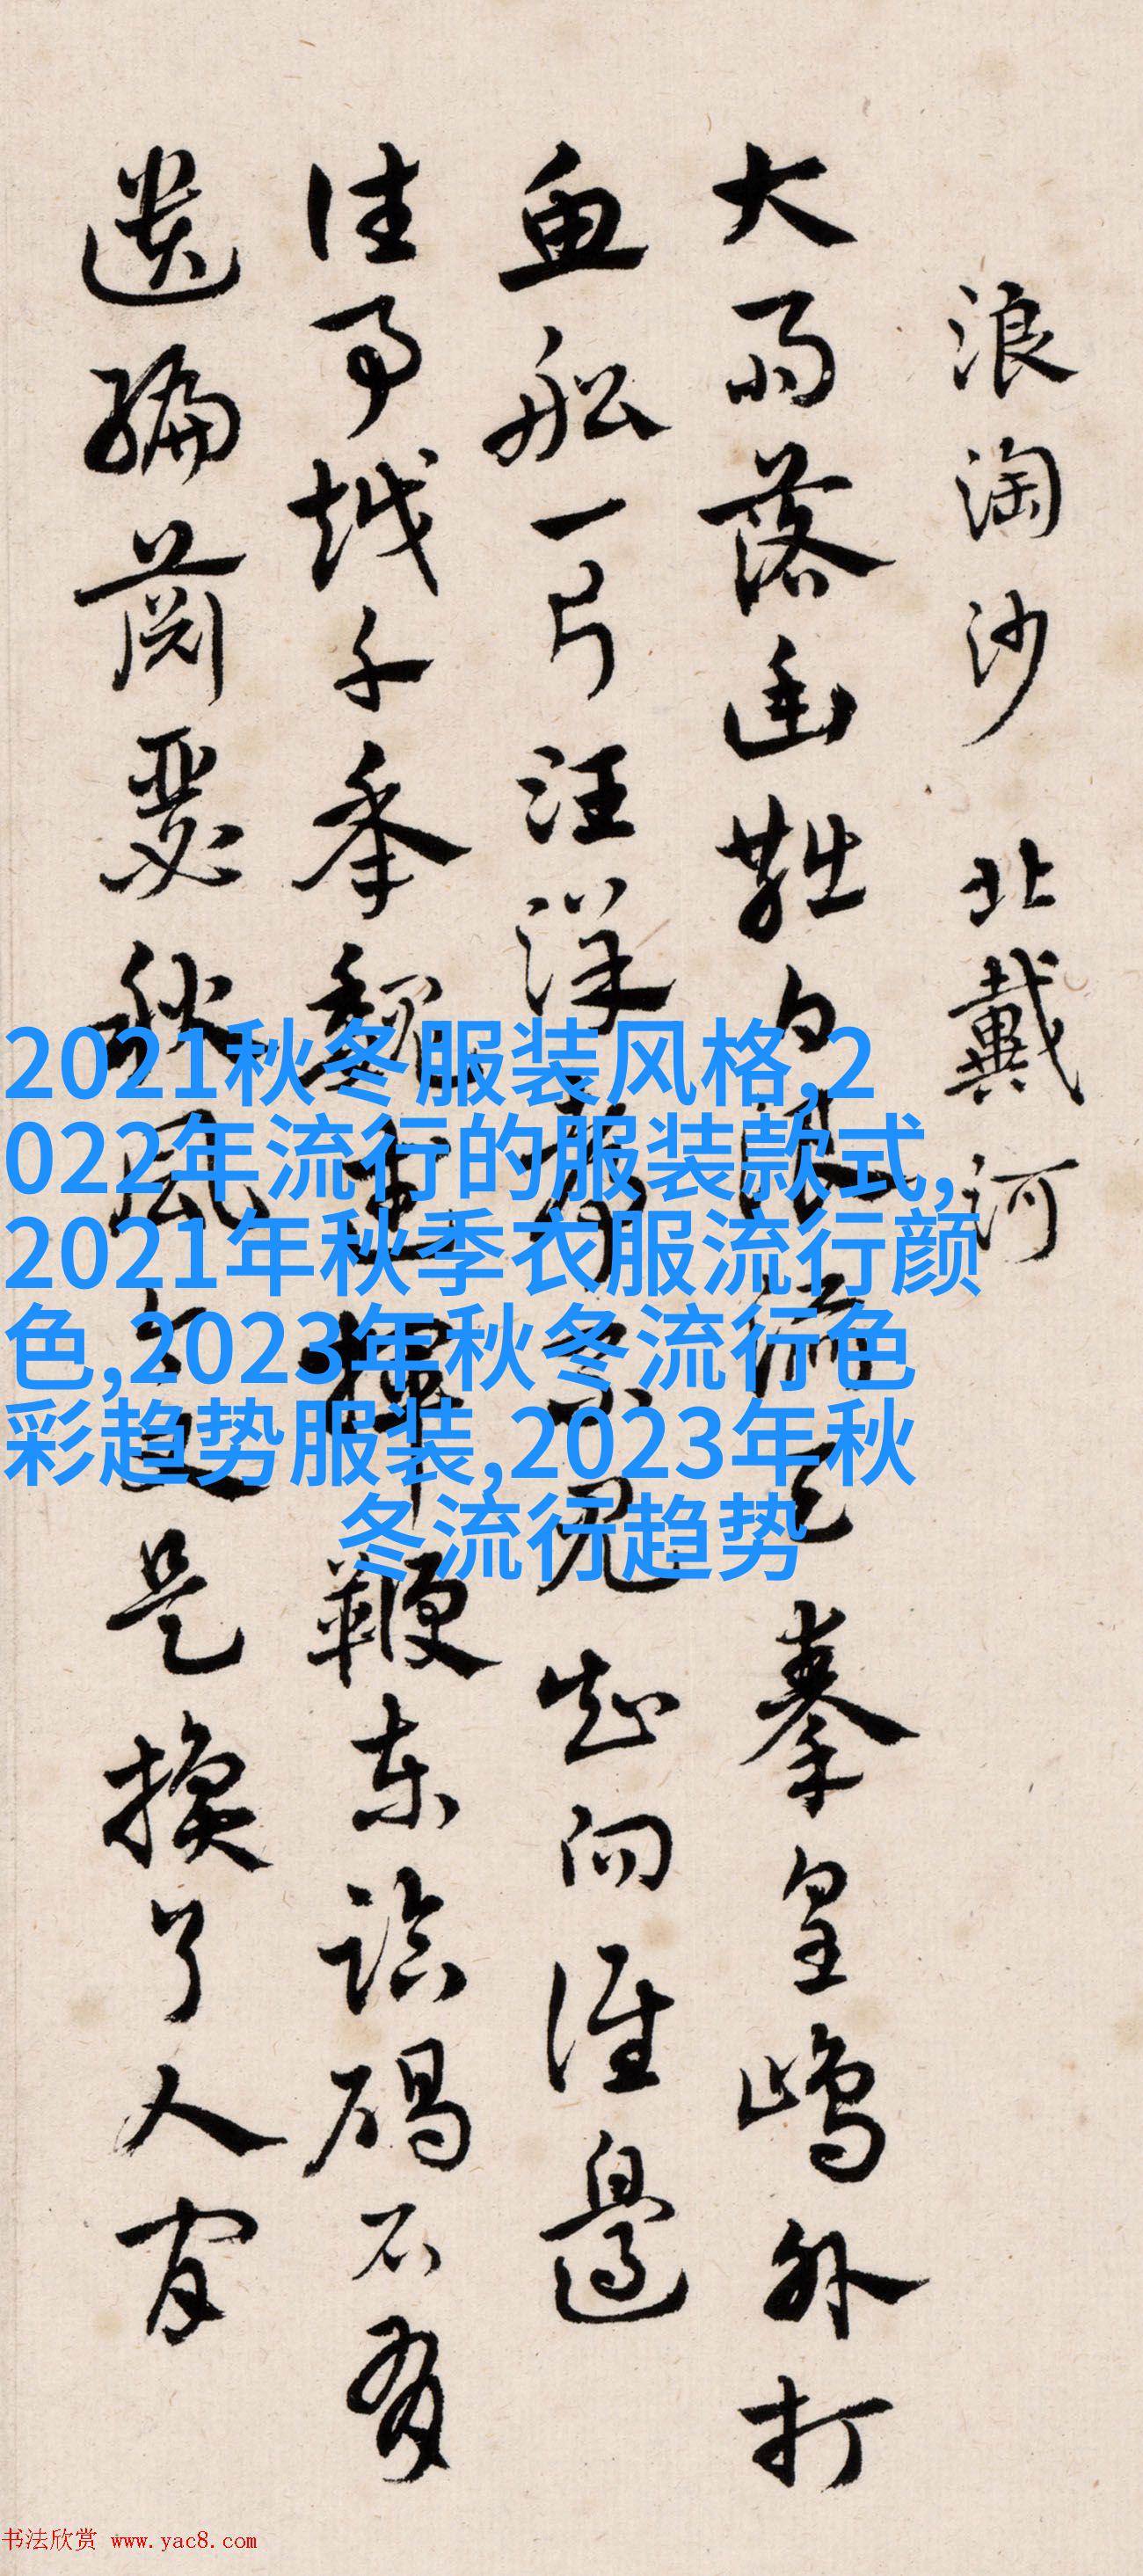 浪淘沙 北戴河
大雨落幽燕白浪滔天 秦皇島外打
魚船一片汪洋都不見知向誰邊
往事越千年魏武揮鞭東臨碣石有
遺編蕭瑟秋風今又是換了人間
2021秋冬服装风格,2
022年流行的服装款式,
2021年秋季衣服流行颜
色,2023年秋冬流行色
彩趋势服装,2023年秋
冬流行趋势
书法欣赏 www.yac8.com